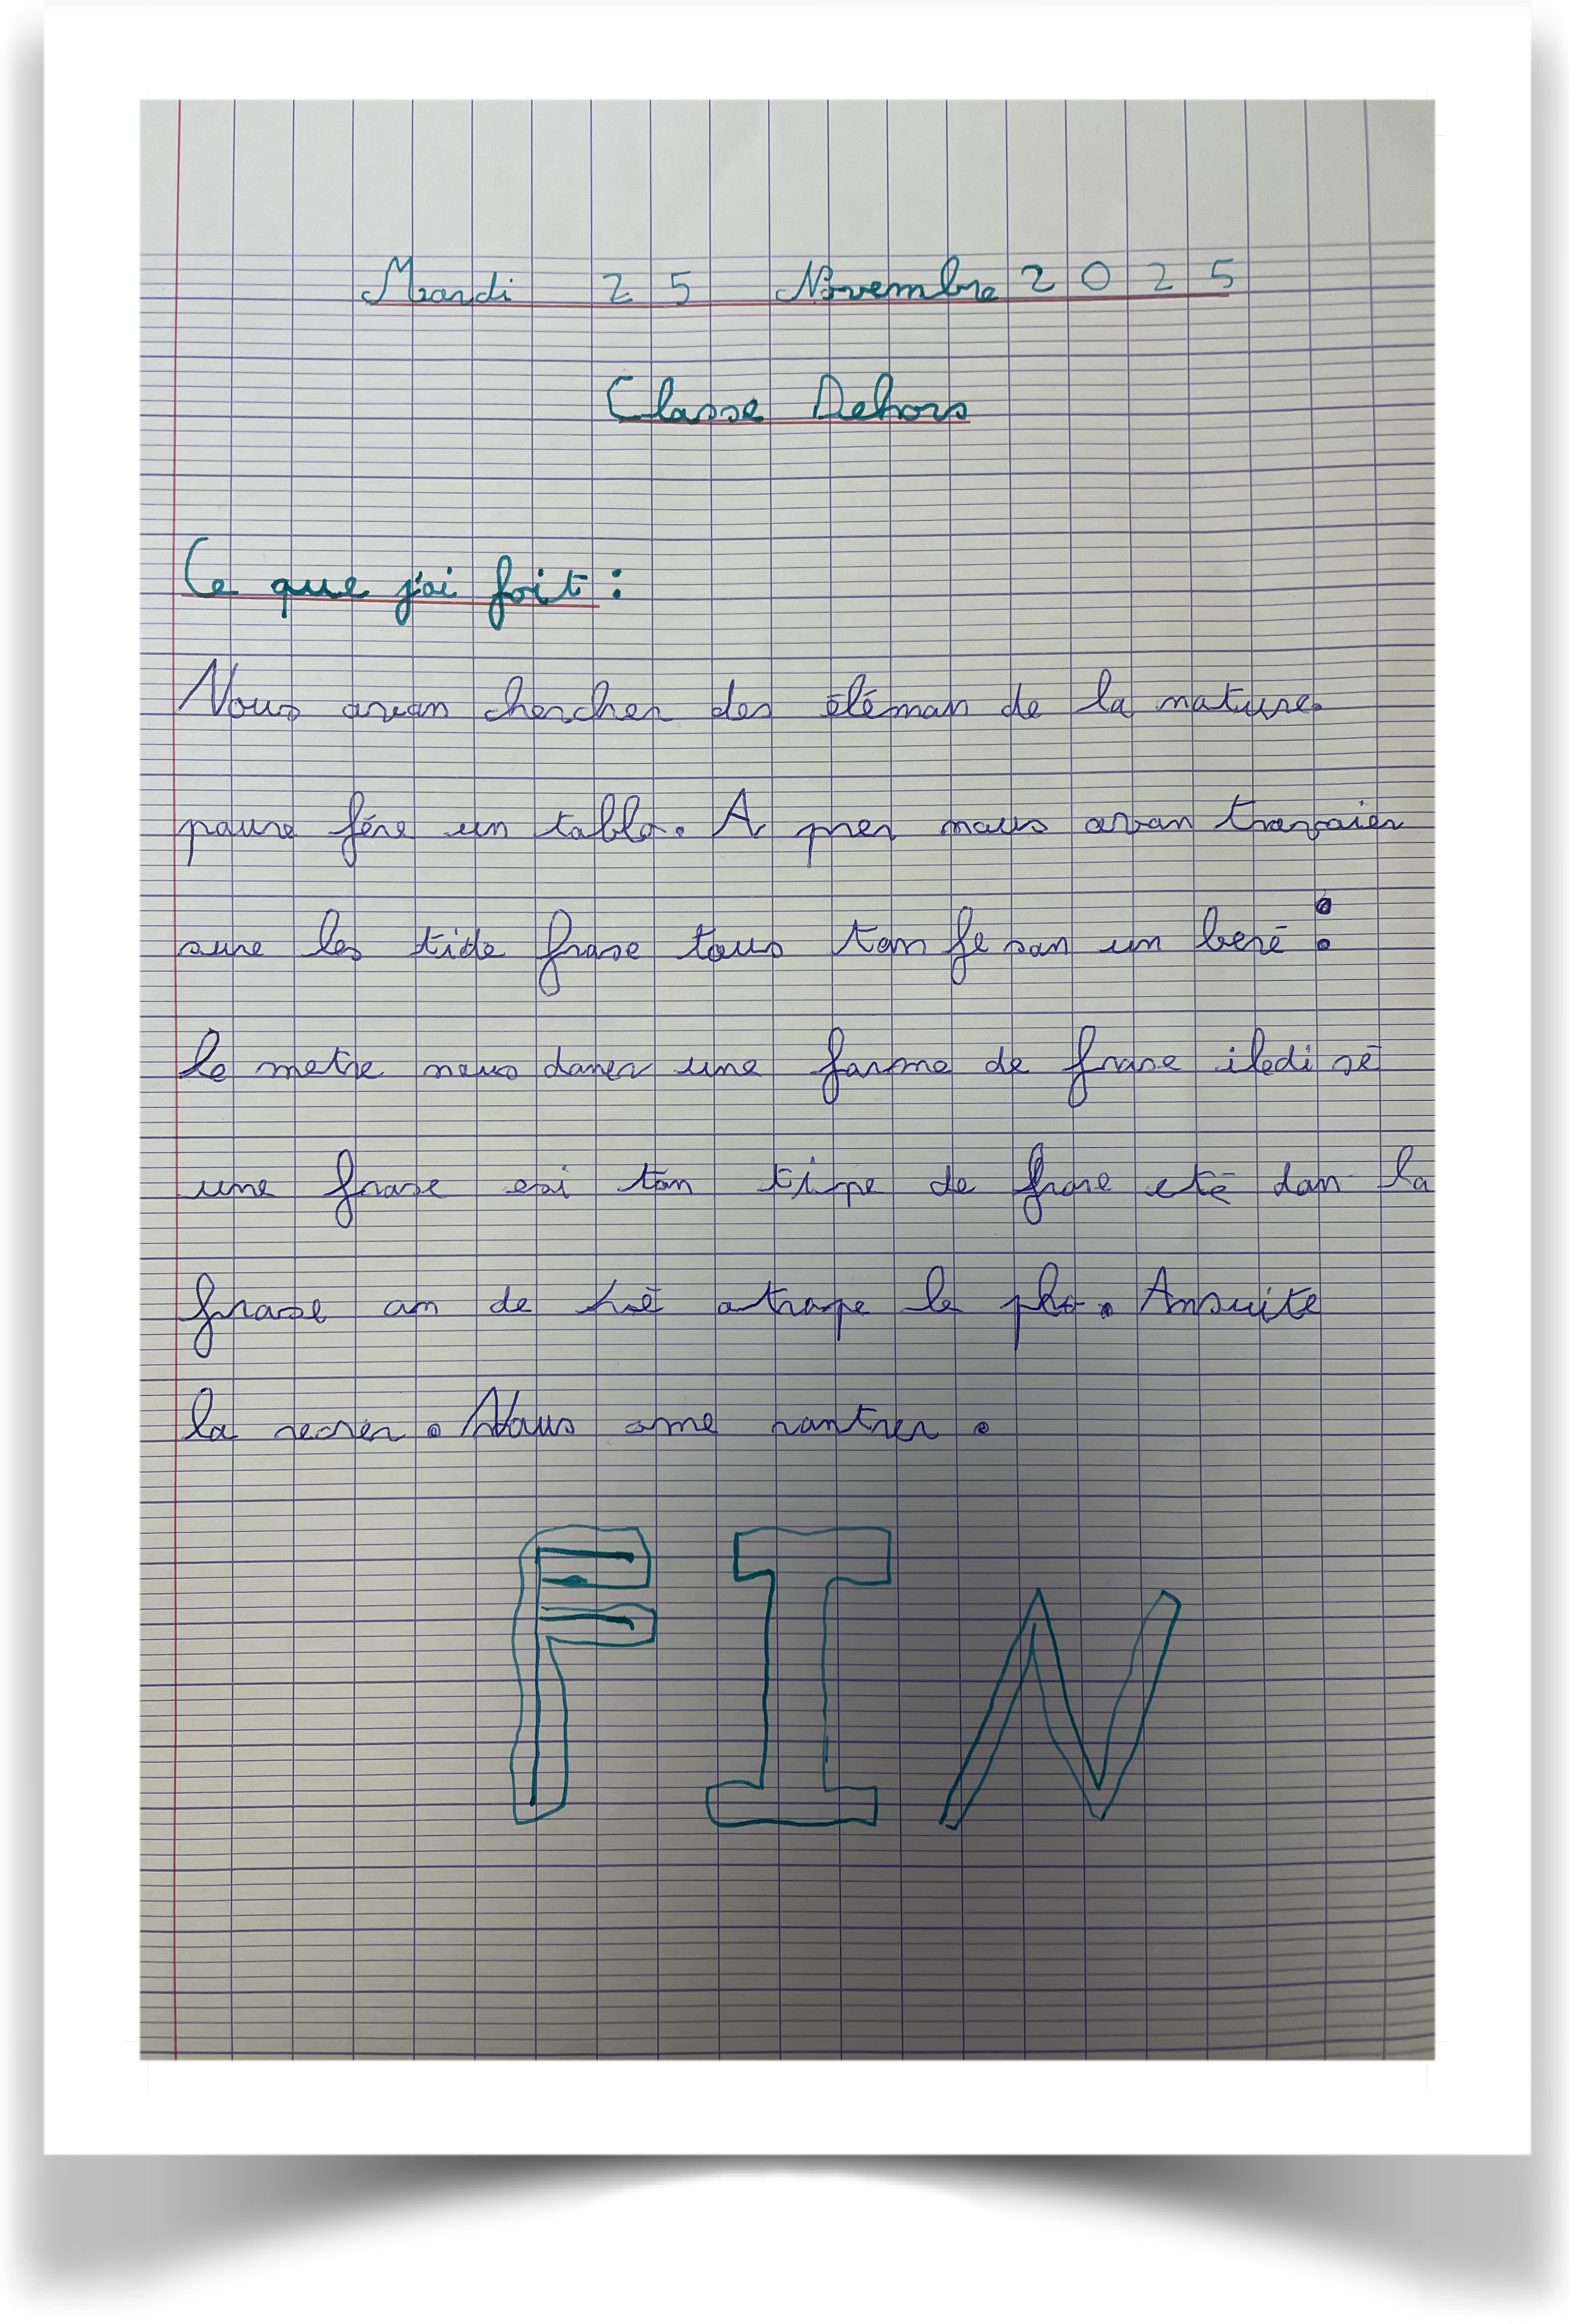 Mardi 25 Novembre 2025
Classe Dehors
Ce que j'ai fait :
Nous avan chercher des éléman de la nature
poure fére un tablo. A prer nous avan travaier
sure les tide frase tous ten fesan un beré :
le metre nous daner une forme de frase iledi sé
une frase esi ton tipe de frase eté dan la
frase an de hié atrape le plo. Ansuite
la recrer. Nous ome rantrer.
FIN